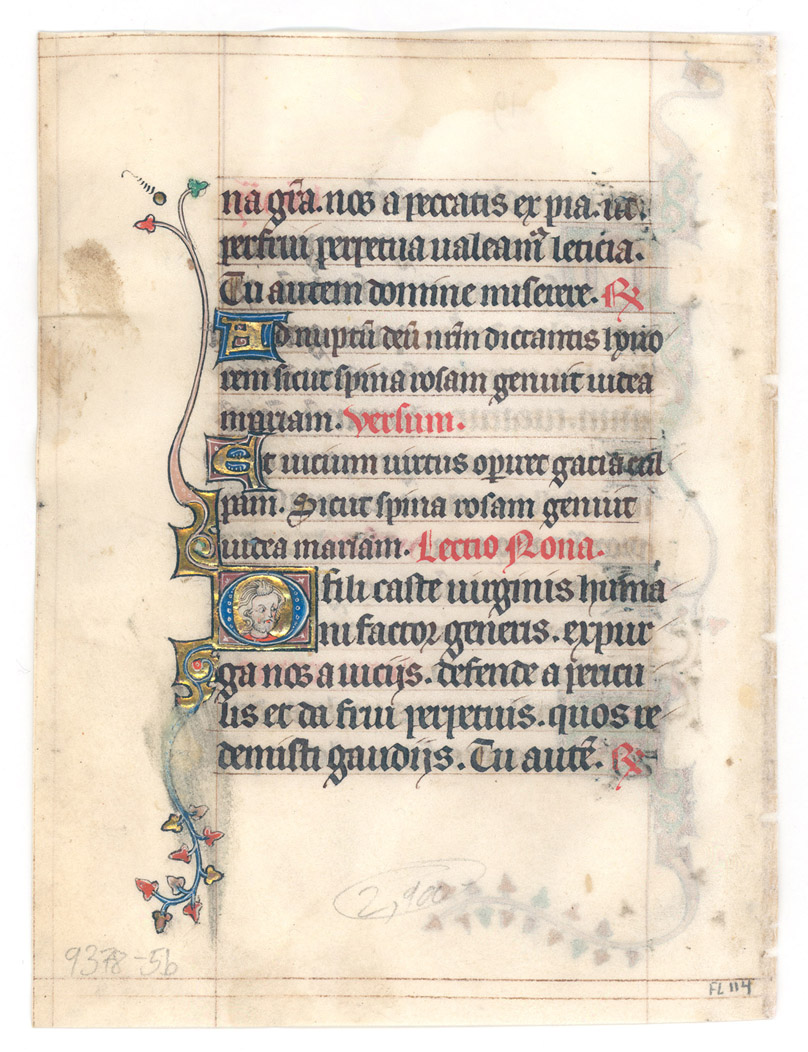 na gr̃a. nos a peccatis expia. ut.
perfrui perpetua ualeam̃ leticia.
Tu autem domine miserere. ℟
Ad nuptũ deũ nr̃m dictantis hono
rem sicut spina rosam genuit iudea
mariam. Versum.
Et uicium uirtus opiret gacia cul
pam. Sicut spina rosam genuit
iudea mariam. Lectio Nona.
O fili caste uirginis huma
ni factor generis. expur
ga nos a uicijs. defende a pericu
lis et da frui perpetuis. quos re
demisti gaudijs. Tu autẽ. ℟
2,900
9378-5b
FL 114